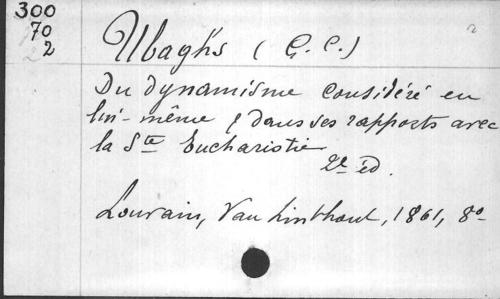 300
70
2
Ubaghs (G. C.)
Du dynamisme considéré en
lui-même & dans ses rapports avec
la Ste Eucharistie
2e éd.
Louvain, Van Linthout, 1861, 8o